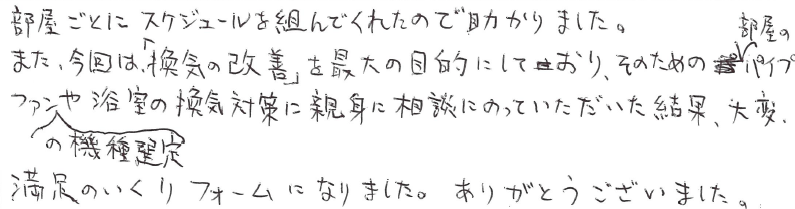 部屋ごとにスケジュールを組んでくれたので助かりました。
また、今回は、「換気の改善」を最大の目的にしており、そのための部屋のパイプ
ファンの機種選定や浴室の換気対策に親身に相談にのっていただいた結果、大変、
満足のいくリフォームになりました。ありがとうございました。